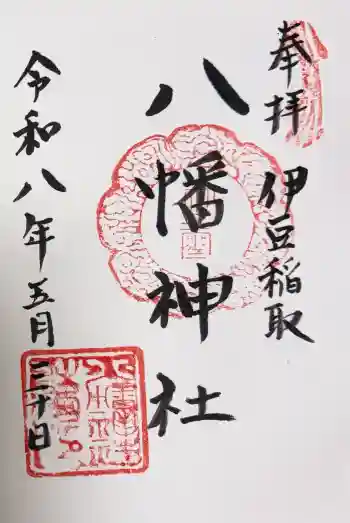 奉拝
伊豆稲取
八幡神社
令和八年五月三十日